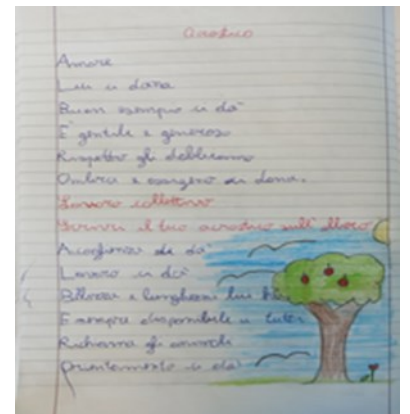 acrostico
Amore
Lui ci dona
Buon esempio ci dà
E gentile e generoso
Rispetto gli dobbiamo
Ombra e ossigeno ci dona.
Lavoro collettivo
Scrivi il tuo acrostico sull'albero
Accoglienza ci dà
Lavoro ci dà
Bellezza e lunghezza lui ha
E sempre disponibile a tutti
Richiama gli
ci dà